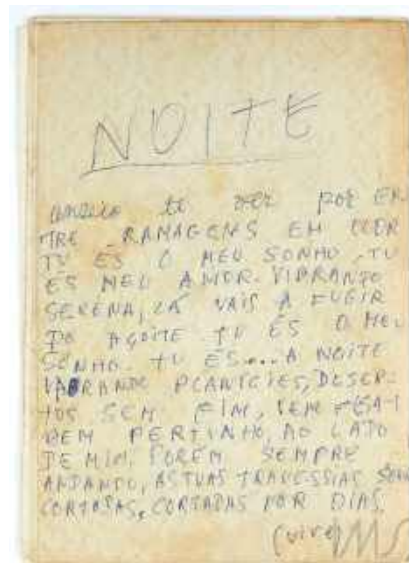 NOITE
te ver por EN
TRE RAMAGENS EM
TU ÉS O MEU SONHO, TU
ÉS MEU AMOR. VIBRANDO
SERENA, LÁ VAIS A FUGIR
DO AÇOITE TU ÉS O MEU
SONHO. TU ÉS... A NOITE
VIBRANDO PLANÍCIES, DESER-
TOS SEM FIM, VEM
BEM PERTINHO, AO LADO
DE MIM. PORÉM SEMPRE
ANDANDO, AS TUAS TRAVESSIAS
CORTADAS POR DIAS
(vire)